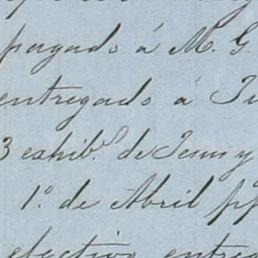 pagado á M. G.
entregado á
3 exhib.s de Jesus y
1º. de Abril pp
efectivo entre